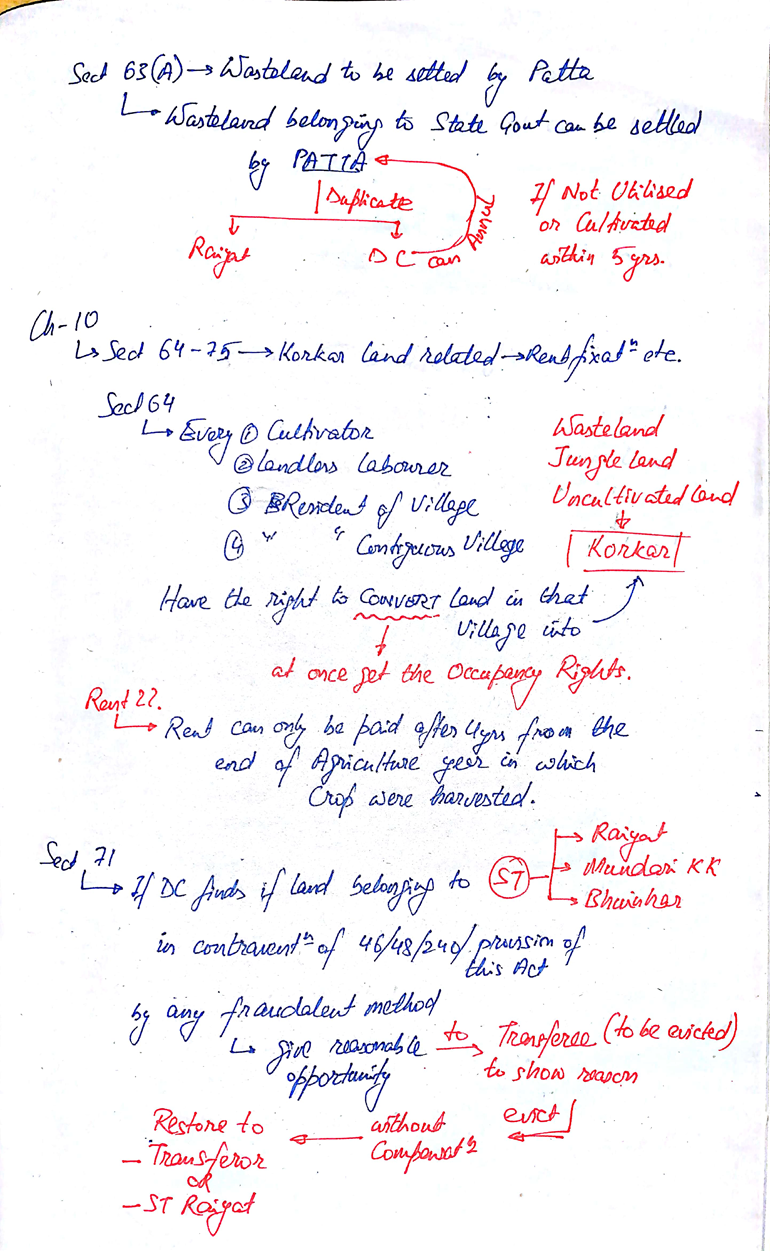 Sect 63(A) → Wasteland to be setted by Patta
↳ Wasteland belonging to State Govt can be settled
by PATTA
Duplicate
Raiyat
DC can
Annul
If Not Utilised
or Cultivated
within 5 yrs.
Ch-10
↳ Sect 64-75 → Korkar land related → Rent fixatⁿ etc.
Sect 64
↳ Every ① Cultivator
② Landless Labourer
③ Resident of Village
④ " " Contiguous Village
Wasteland
Jungle Land
Uncultivated Land
↓
Korkar
Have the right to CONVERT Land in that
Village into
at once get the Occupancy Rights.
Rent ??.
↳ Rent can only be paid after 4yrs from the
end of Agriculture year in which
Crop were harvested.
Sect 71
↳ If DC finds if land belonging to ST
→ Raiyat
→ Mundari KK
→ Bhuinhar
in contraventⁿ of 46/48/240/ provision of
this Act
by any fraudalent method
↳ give reasonable
opportunity
to → Transferee (to be evicted)
to show reason
evict
← without
Compensatⁿ
← Restore to
- Transferor
OR
- ST Raiyat